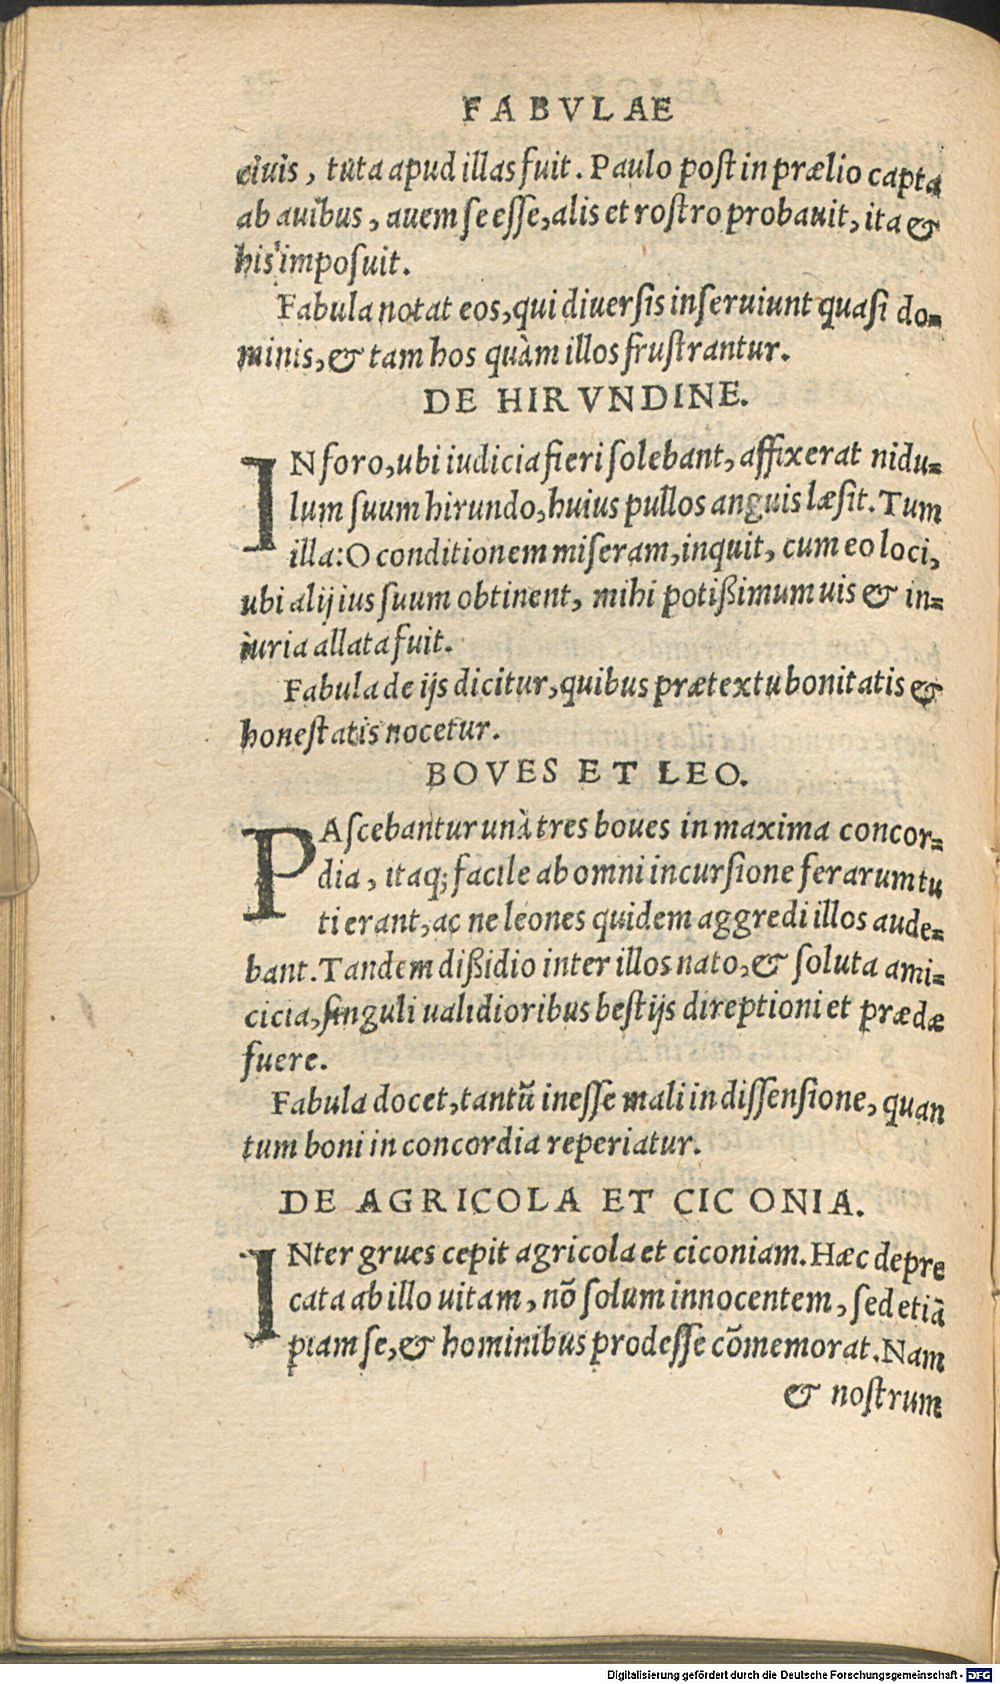 FABVLAE
eiuis, tuta apud illas fuit. Paulo post in prælio capta
ab auibus, auem se esse, alis et rostro probauit, ita &
his imposuit.
Fabula notat eos, qui diuersis inseruiunt quasi do-
minis, & tam hos quàm illos frustrantur.
DE HIRVNDINE.
IN foro, ubi iudicia fieri solebant, affixerat nidu-
lum suum hirundo, huius pullos anguis læsit. Tum
illa: O conditionem miseram, inquit, cum eo loci,
ubi alij ius suum obtinent, mihi potißimum uis & in-
iuria allata fuit.
Fabula de ijs dicitur, quibus prætextu bonitatis &
honestatis nocetur.
BOVES ET LEO.
PAscebantur unà tres boues in maxima concor-
dia, itaq; facile ab omni incursione ferarum tu
ti erant, ac ne leones quidem aggredi illos aude-
bant. Tandem dißidio inter illos nato, & soluta ami-
cicia, singuli ualidioribus bestijs direptioni et prædæ
fuere.
Fabula docet, tantū inesse mali in dissensione, quan
tum boni in concordia reperiatur.
DE AGRICOLA ET CICONIA.
INter grues cepit agricola et ciconiam. Hæc depre
cata ab illo uitam, nō solum innocentem, sed etiā
piam se, & hominibus prodesse cōmemorat. Nam
& nostrum
Digitalisierung gefördert durch die Deutsche Forschungsgemeinschaft - DFG